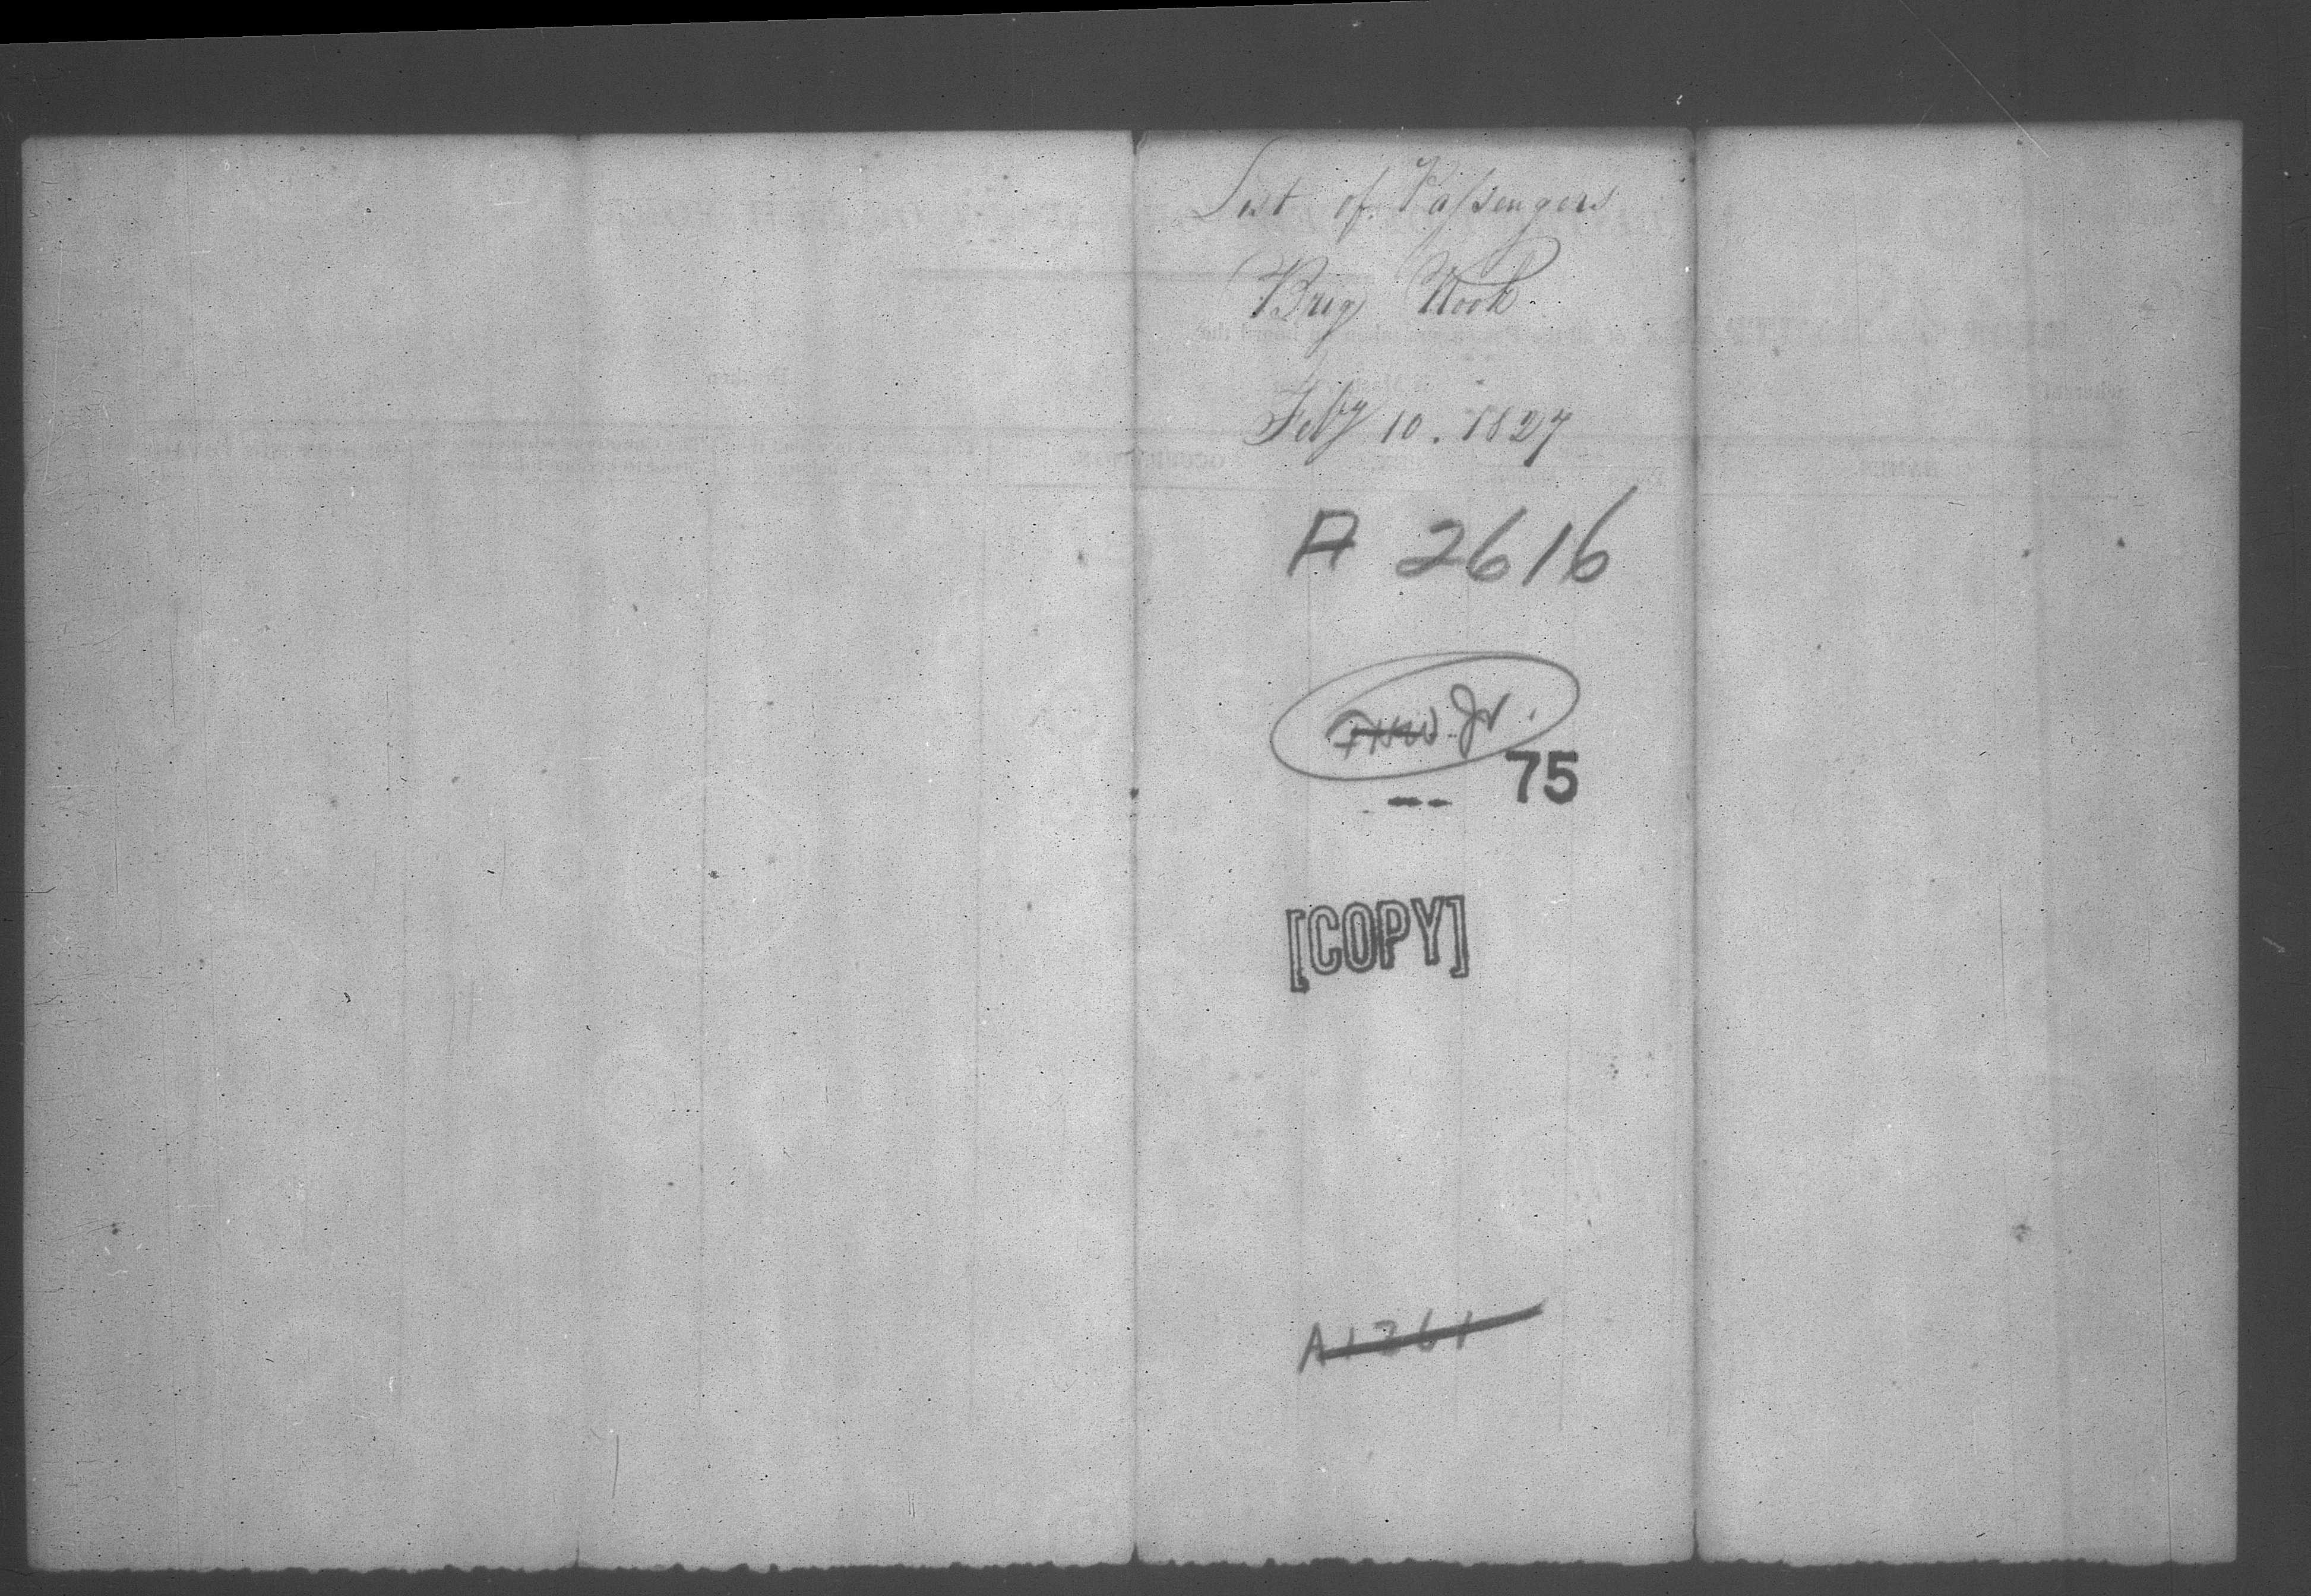 List of Passengers
Brig Nook
Feby 10. 1827
A 2616
Jr.
75
[COPY]
A1361